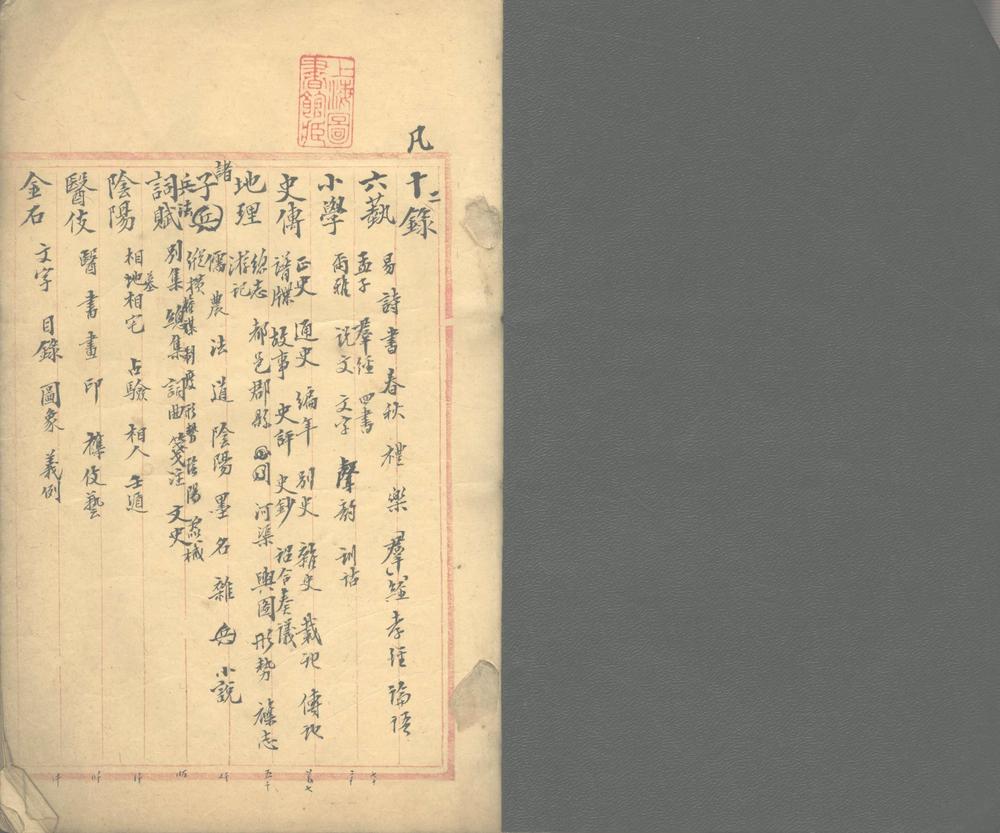 上海圖書館藏
凡十二錄
六藝 易 詩 書 春秋 禮 樂 羣經 孝經 論語
孟子 羣經 四書
小學 爾雅 说文 文字 聲韵 訓詁
史傳 正史 通史 編年 别史 雜史 載記 傳記
譜牒 故事 史評 史鈔 詔令奏議
地理 總志 都邑郡縣 河渠 輿圖 形勢 雜志
游記
諸子 儒 農 法 道 陰陽 墨 名 雜 小説
兵法 縱橫 權謀 制度 形勢 陰陽
詞賦 别集 總集 詞曲 箋注 文史
陰陽 相地相宅 占驗 相人 壬遁
相墓
醫伎 醫 書 畫 印 雜伎藝
金石 文字 目錄 圖象 義例